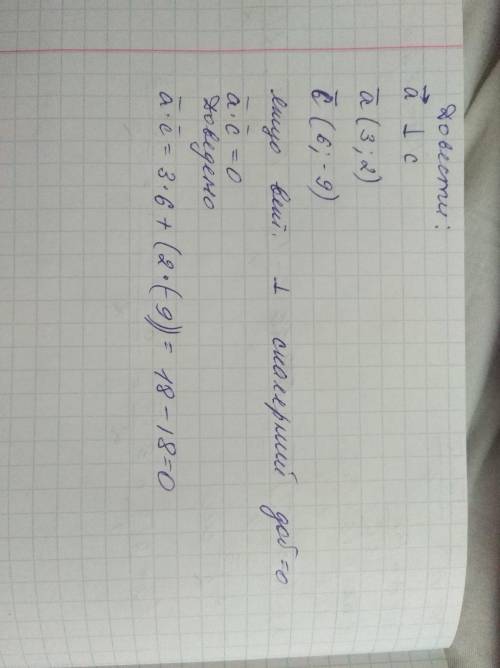 Довести:
a⃗ ⊥ c
a̅ (3; 2)
c̅ (6; -9)
якщо вект. ⊥ скалярний доб = 0
a̅ · c̅ = 0
Доведено
a̅ · c̅ = 3 · 6 + (2 · (-9)) = 18 - 18 = 0